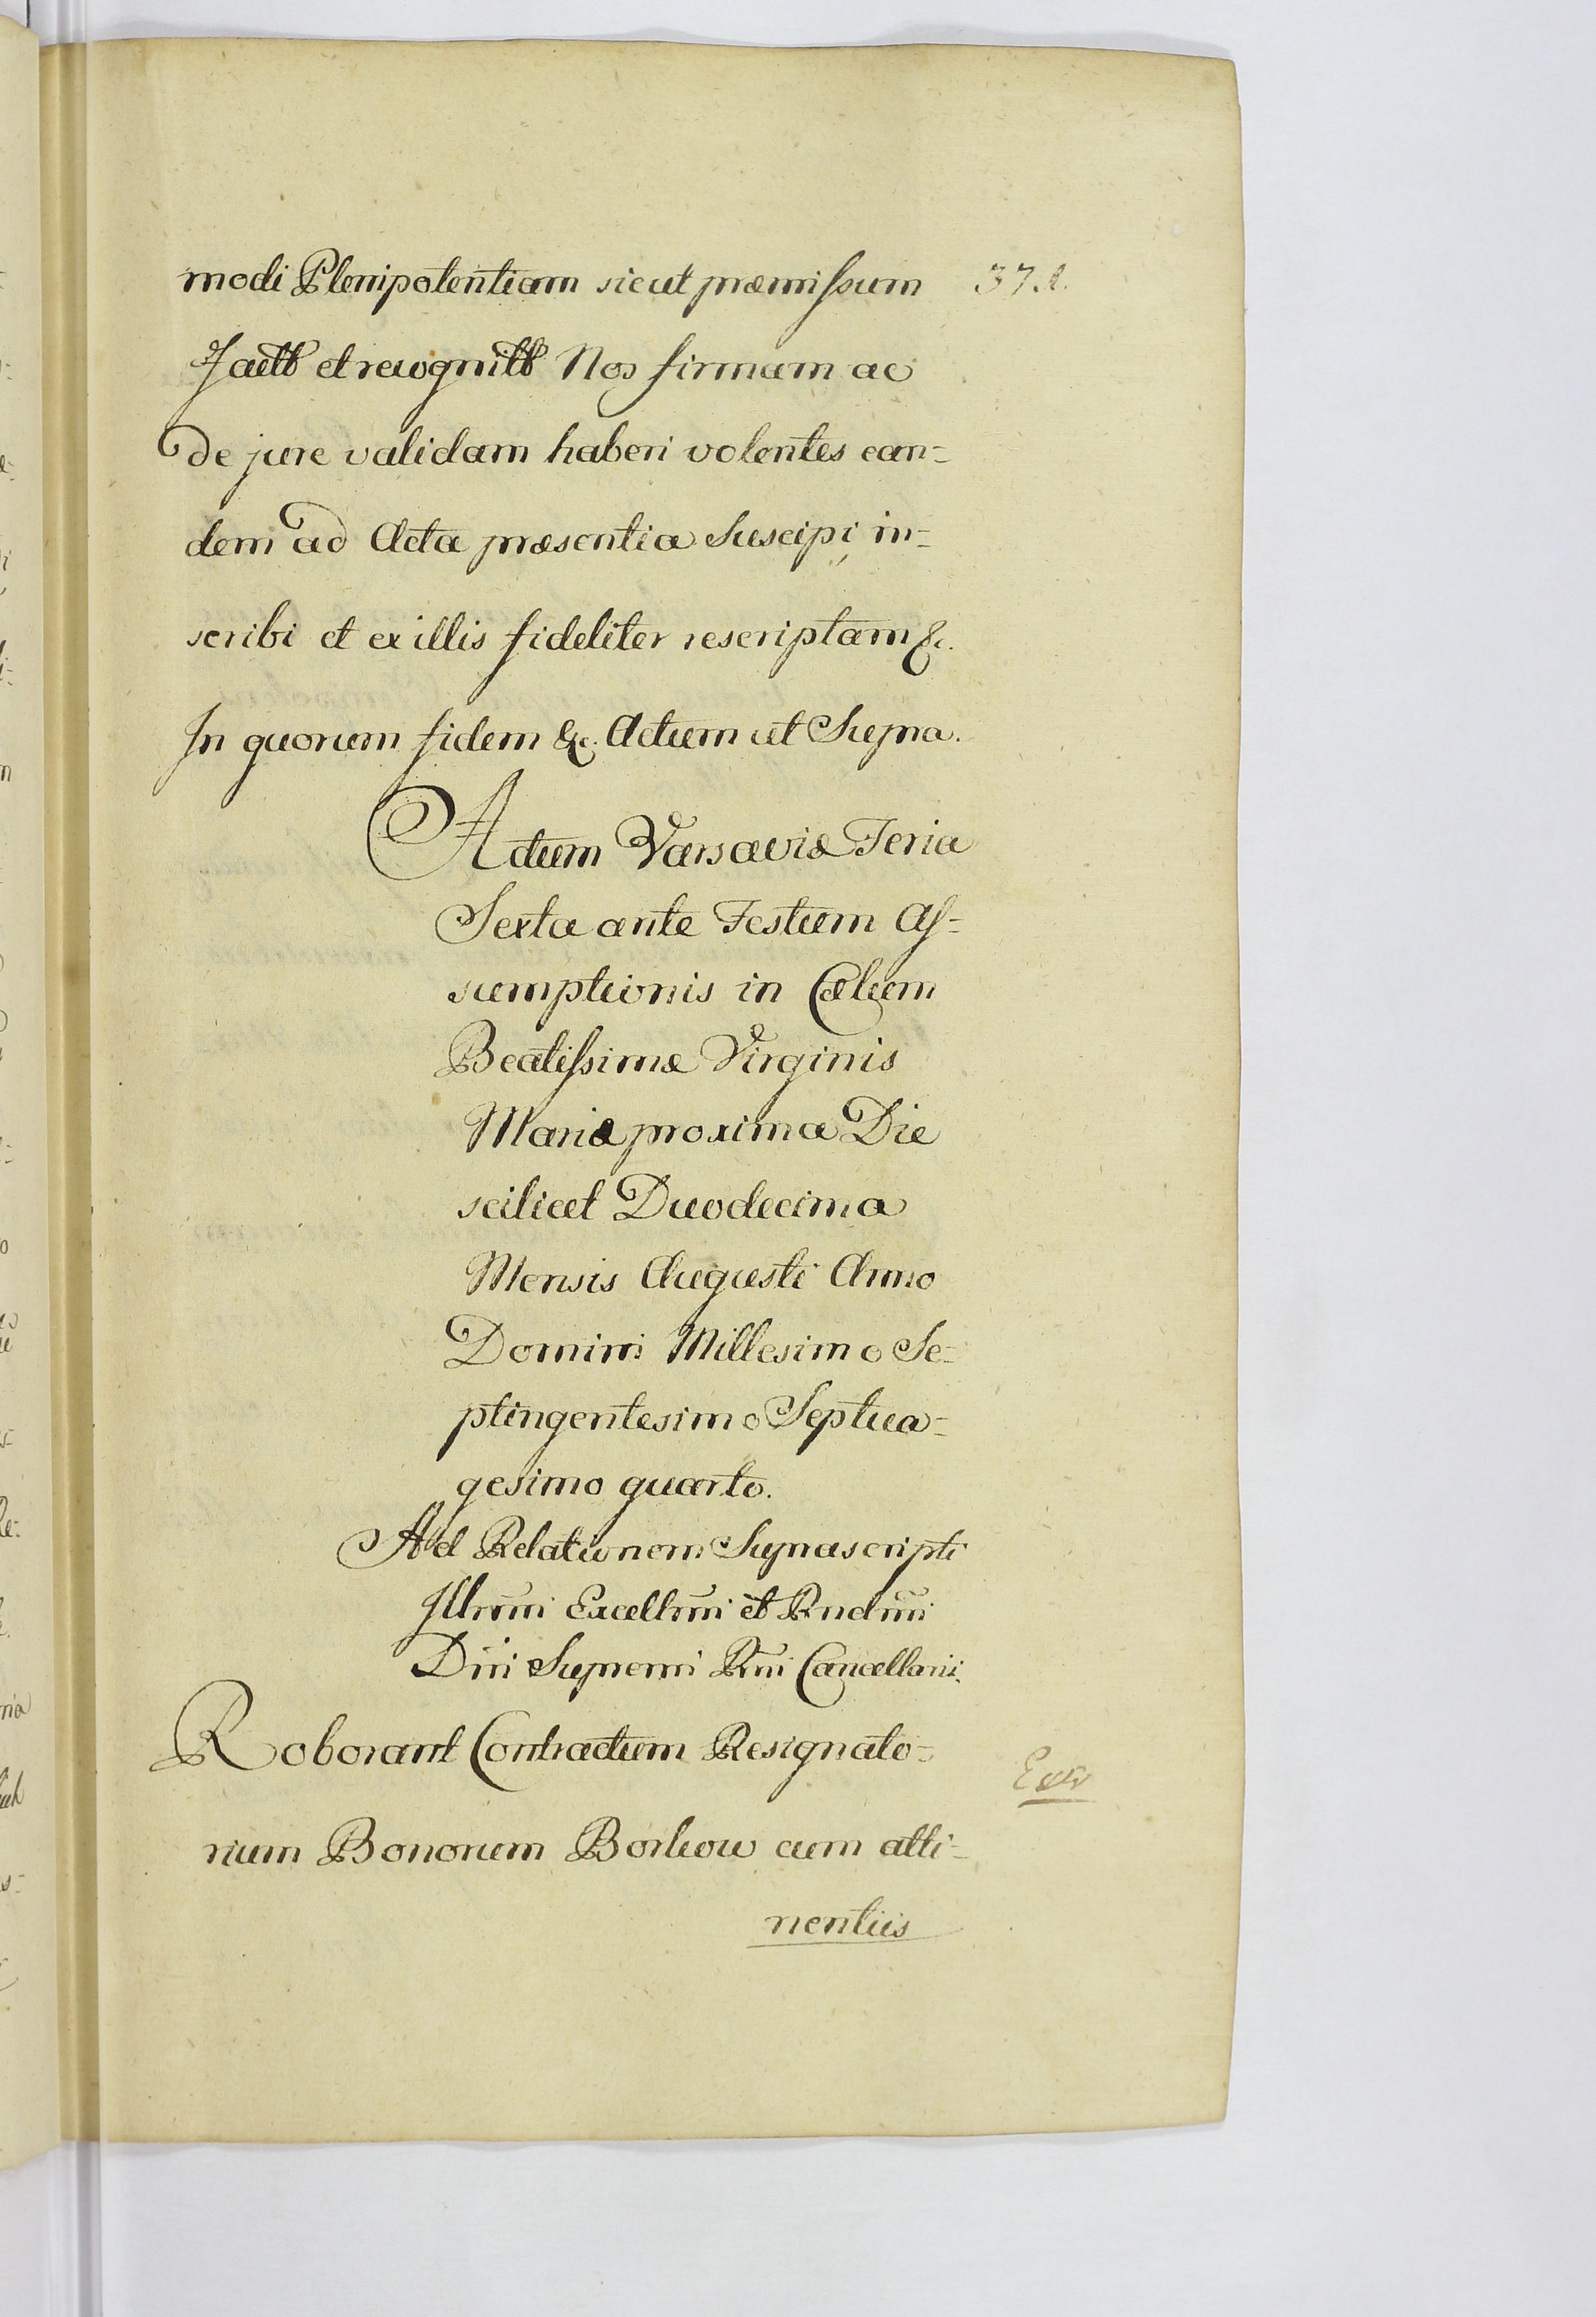 modi Plenipotentiam sicut præmissum
factb et recognitb Nos firmam ac
de jure validam haberi volentes ean=
dem ad Acta præsentia Suscipi, in=
scribi et ex illis fideliter rescriptam &c.
In quorum fidem &c. Actum ut Supra.
Actum Varsaviæ Feria
Sexta ante Festum As=
sumptionis in Cælum
Beatissimæ Virginis
Mariæ proxima Die
scilicet Duodecima
Mensis Augusti Anno
Domini Millesimo Se=
ptingentesimo Septua=
gesimo quarto.
Ad Relationem Suprascripti
Illrmi Excellmi et Rndmi
Dni Supremi Rni Cancellarii.
Roborant Contractum Resignato=
rium Bonorum Borkow cum atti=
nentiis